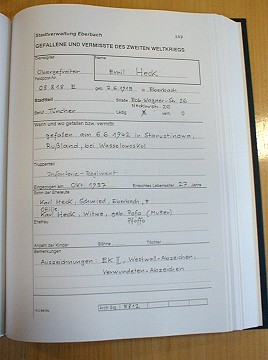 Stadtverwaltung Eberbach
GEFALLENE UND VERMISSTE DES ZWEITEN WELTKRIEGS
Dienstgrad Name
Obergefreiter Emil Heck
Feldpost-Nr.
03 818 E geb. 7.6.1915 in Eberbach
Stadtteil Straße
Neckarstr. 20
Beruf Tüncher Ledig
Wann und wo gefallen bzw. vermißt
gefallen am 6.6.1942 in Starustinowa,
Rußland, bei
Truppenteil
Infanterie-Regiment
Eingezogen am Okt. 1937 Erreichtes Lebensalter 27 Jahre
Name der Eheleute
Karl Heck, Schmied, Eberbach, †
Karl Heck, Witwe, geb. (Mutter)
Ehefrau
Anzahl der Kinder Söhne Töchter
Bemerkungen
Auszeichnungen: EK II, Westwall-Abzeichen,
Verwundeten-Abzeichen